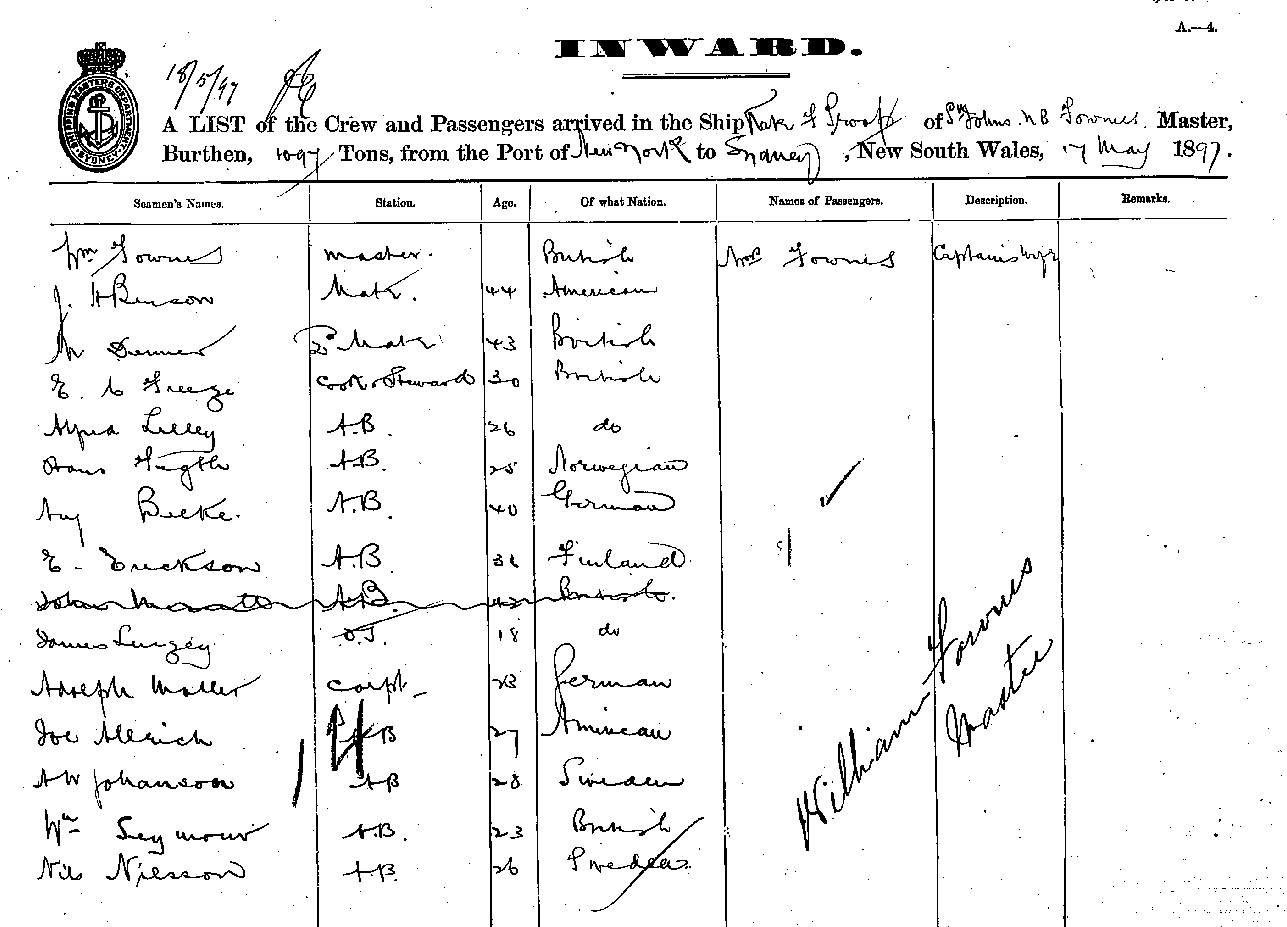 A.—4.
INWARD.
18/5/97
SHIPPING MASTERS DEPARTMENT SYDNEY
A LIST of the Crew and Passengers arrived in the Ship of St Johns NB Fownes Master,
Burthen, 1097 Tons, from the Port of New York to Sydney, New South Wales, 17 May 1897.
Seamen's Names. Station. Age. Of what Nation. Names of Passengers. Description. Remarks.
Wm Fownes master. British Mrs Fownes Captains wife
J. H Benson Mate. 44 American
43 British
E. C Freeze Cook & Steward 30 British
Lilley A.B. 26 do
Hans A.B. 25 Norwegian
Aug A.B. 40 German
E. Erickson A.B. Finland
John A.B. 42 British
James O.S. 18 do
Adolph Moller Carpt 23 German
Joe Allrich AB 27 American
14
A W Johanson AB 28 Sweden
Wm Seymour A.B. 23 British
Nils Nilsson AB 26 Sweden
William Fownes
Master